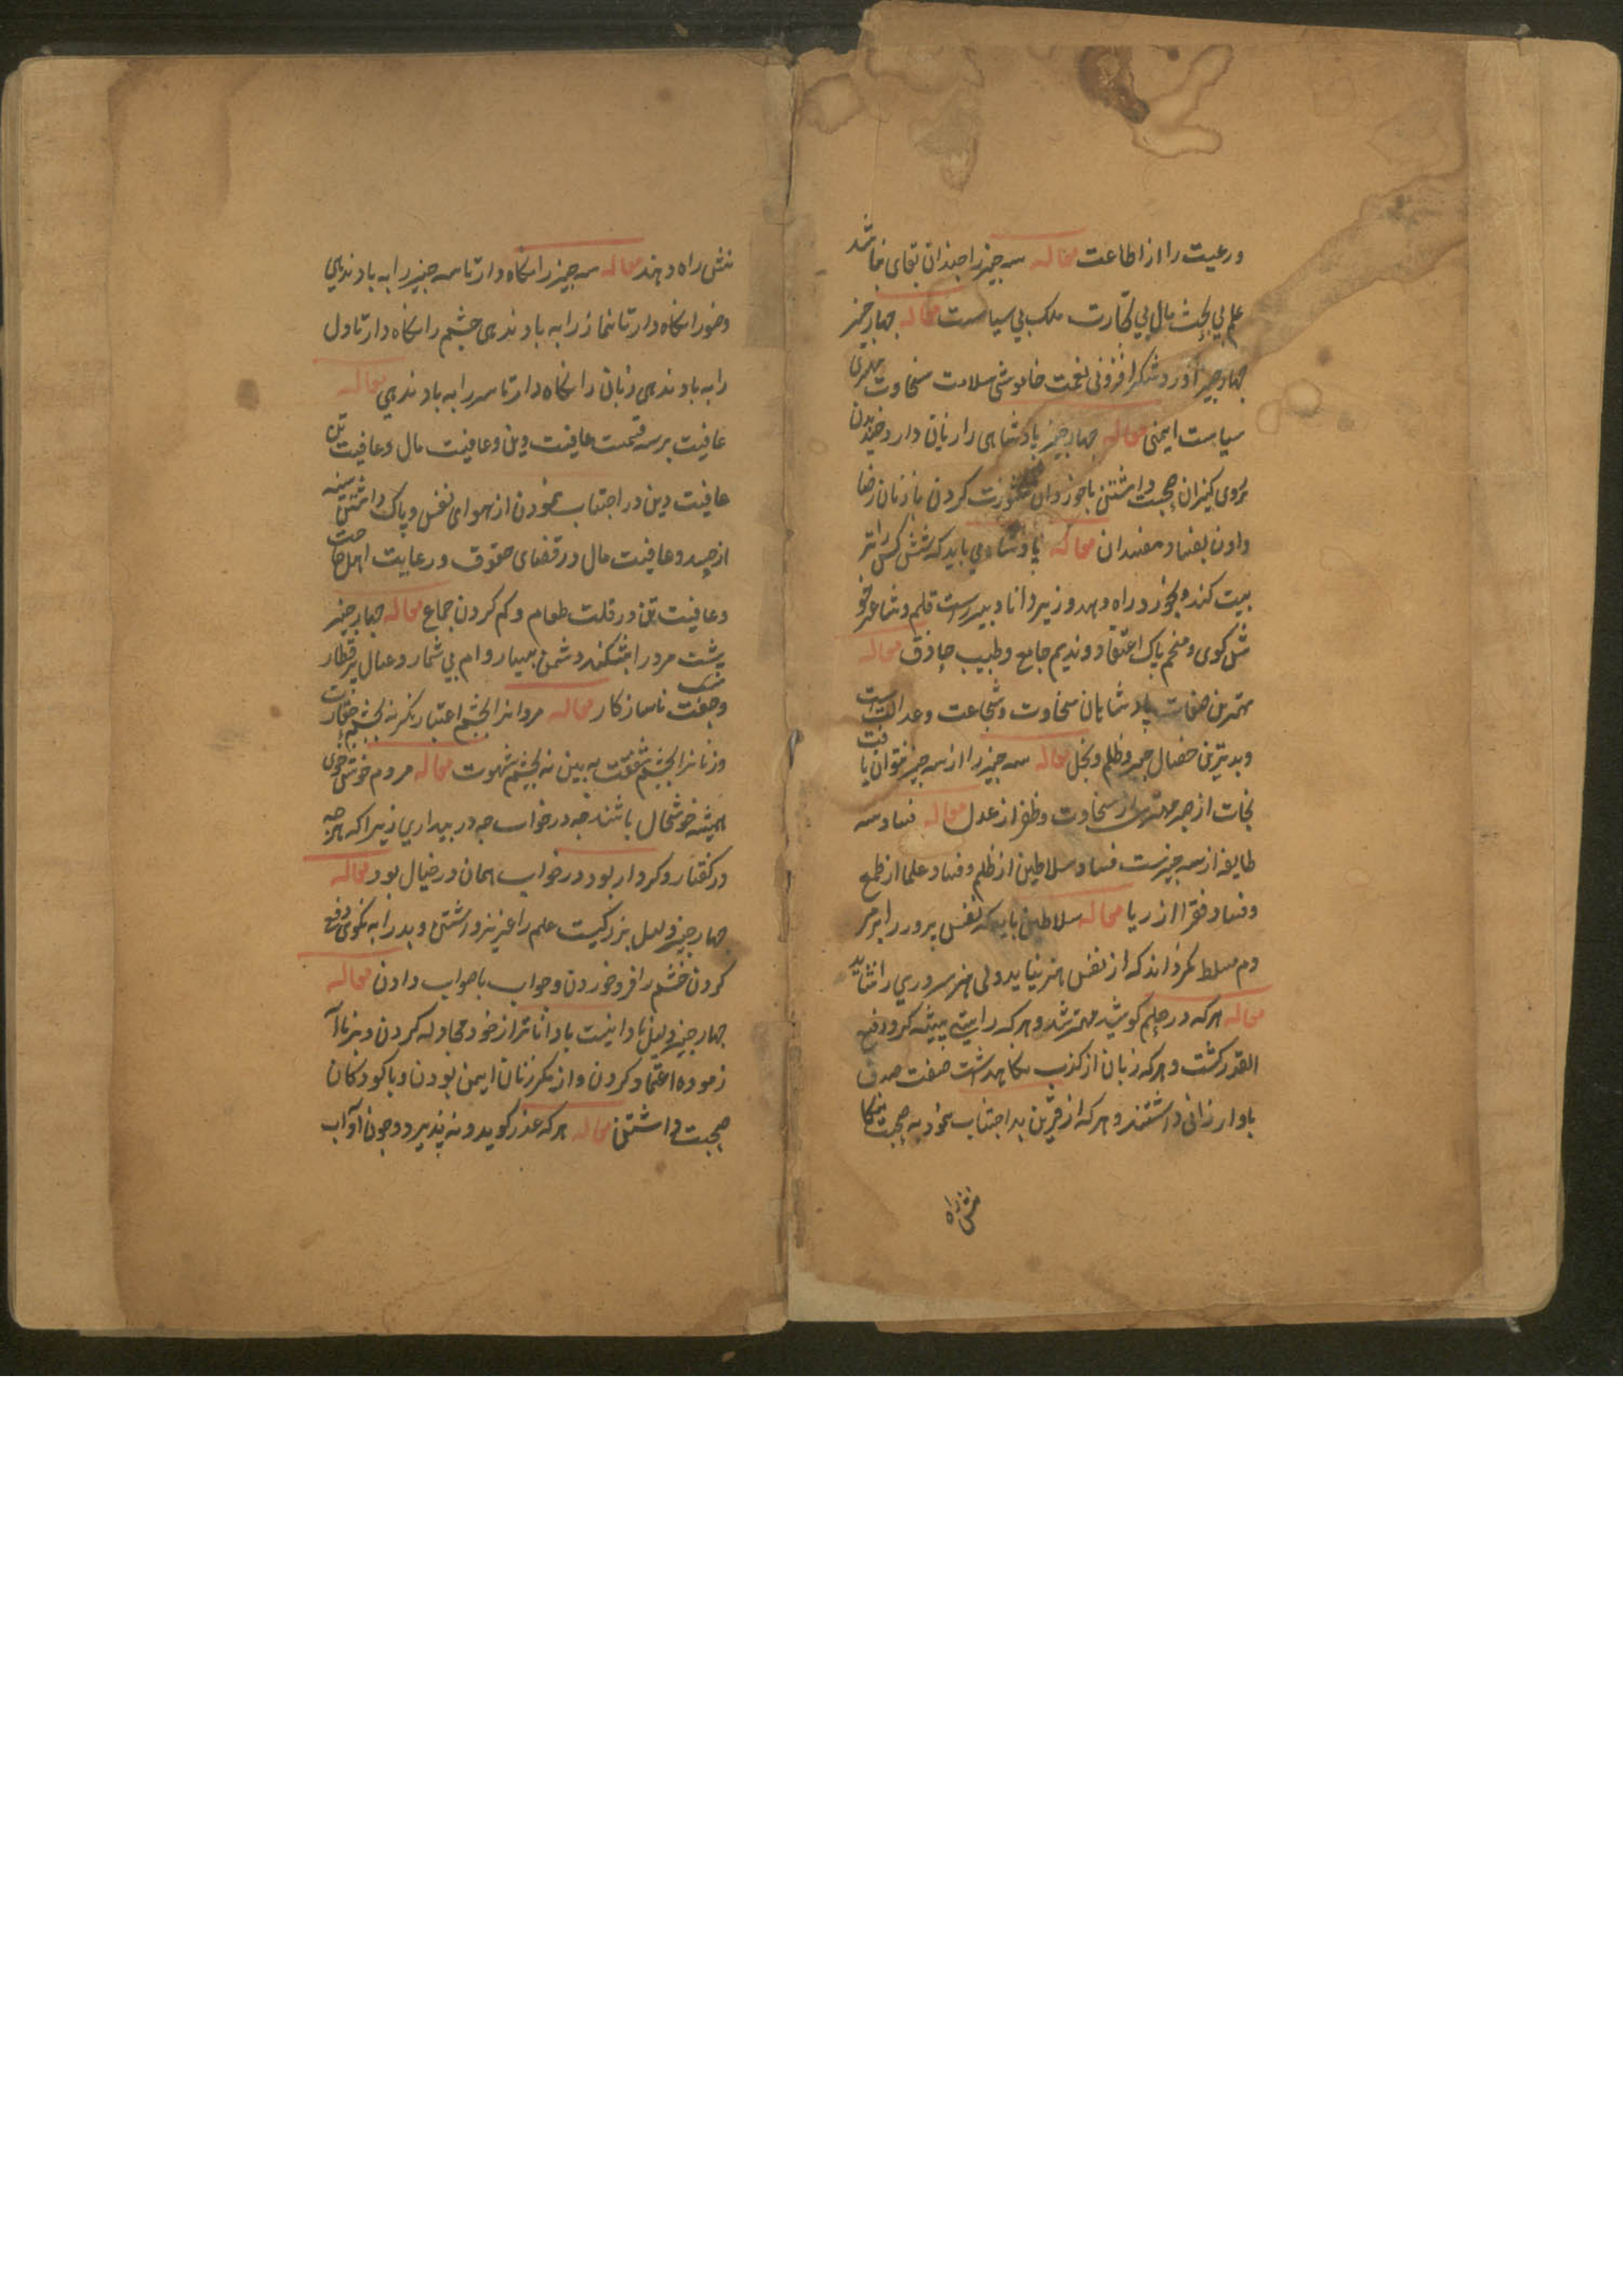 و رعیت را از اطاعت مقاله سه چیز را چندان بقای نباشد
علم بی بحث مال بی تجارت ملک بی سیاست مقاله چهار چیز
چهار چیز آورد شکر افزونی نعمت خاموشی سلامت سخاوت مهتری
سیاست ایمنی مقاله چهار چیز پادشاهی را زیان دارد خندیدن
بروی کهتران صحبت داشتن با خوردان مشورت کردن با زنان رضا
دادن بفساد مفسدان مقاله پادشاه می باید که شش کس را تر
بیت کند و بخود راه دهد وزیر دانا و دبیر راست قلم و شاعر خو
ش کوی و منجم پاک اعتقاد و ندیم جامع و طبیب حاذق مقاله
بهترین صفات پادشاهان سخاوت و شجاعت و عدالت است
و بدترین خصال جبر و ظلم و بخل مقاله سه چیز را از سه چیز توان یافت
نجات از صبر مهتری از سخاوت و ظفر از عدل مقاله فساد سه
طایفه از سه چیزست فساد سلاطین از ظلم و فساد علما از طمع
و فساد فقرا از ریا مقاله سلاطین باید که نفس پرور را بر مر
دم مسلط نکرداند که از نفس هنر نیاید و بی هنر سروری را نشاید
مقاله هر که در حلم کوشید مهتر شد و هر که راستی پیشه کرد رفیع
القدر کشت و هر که زبان از کذب نکاهداشت صفت صدق
باو ارزانی داشتند و هر که از قرین بد اجتناب نمود به صحبت نیکا
نش راه
نش راه دهند مقاله سه چیز را نکاه دار تا سه چیز را به باد ندهی
وضو را نکاه دار تا نماز را به باد ندهی چشم را نکاه دار تا دل
را به باد ندهی زبان را نکاه دار تا سر را به باد ندهی مقاله
عافیت بر سه قسمت عافیت دین و عافیت مال و عافیت تن
عافیت دین در اجتناب نمودن از هوای نفس و پاک داشتن سینه
از حسد و عافیت مال در قضای حقوق و رعایت اهل حاجت
و عافیت تن در قلت طعام و کم کردن جماع مقاله چهار چیز
پشت مرد را بشکند دشمن بسیار و وام بی شمار و عیال پر قطار
و جفت ناسازکار مقاله مردانرا بچشم اعتبار نکر نه بچشم حقارت
و زنانرا بچشم شفقت به بین نه بچشم شهوت مقاله مردم خوش خوی
همیشه خوشحال باشند چه در خواب چه در بیداری زیرا که هر چه
در کفتار و کردار بود در خواب همان در خیال بود مقاله
چهار چیز دلیل بزرکیست علم را عزیز داشتن و بد را به نکوی دفع
کردن خشم را فرو خوردن و جواب با صواب دادن مقاله
چهار چیز دلیل نادانیست با داناتر از خود مجادله کردن و بر ناآ
زموده اعتماد کردن و از مکر زنان ایمن بودن و با کودکان
صحبت داشتن مقاله هر که عذر کوید و نه پذیرد و چون آداب